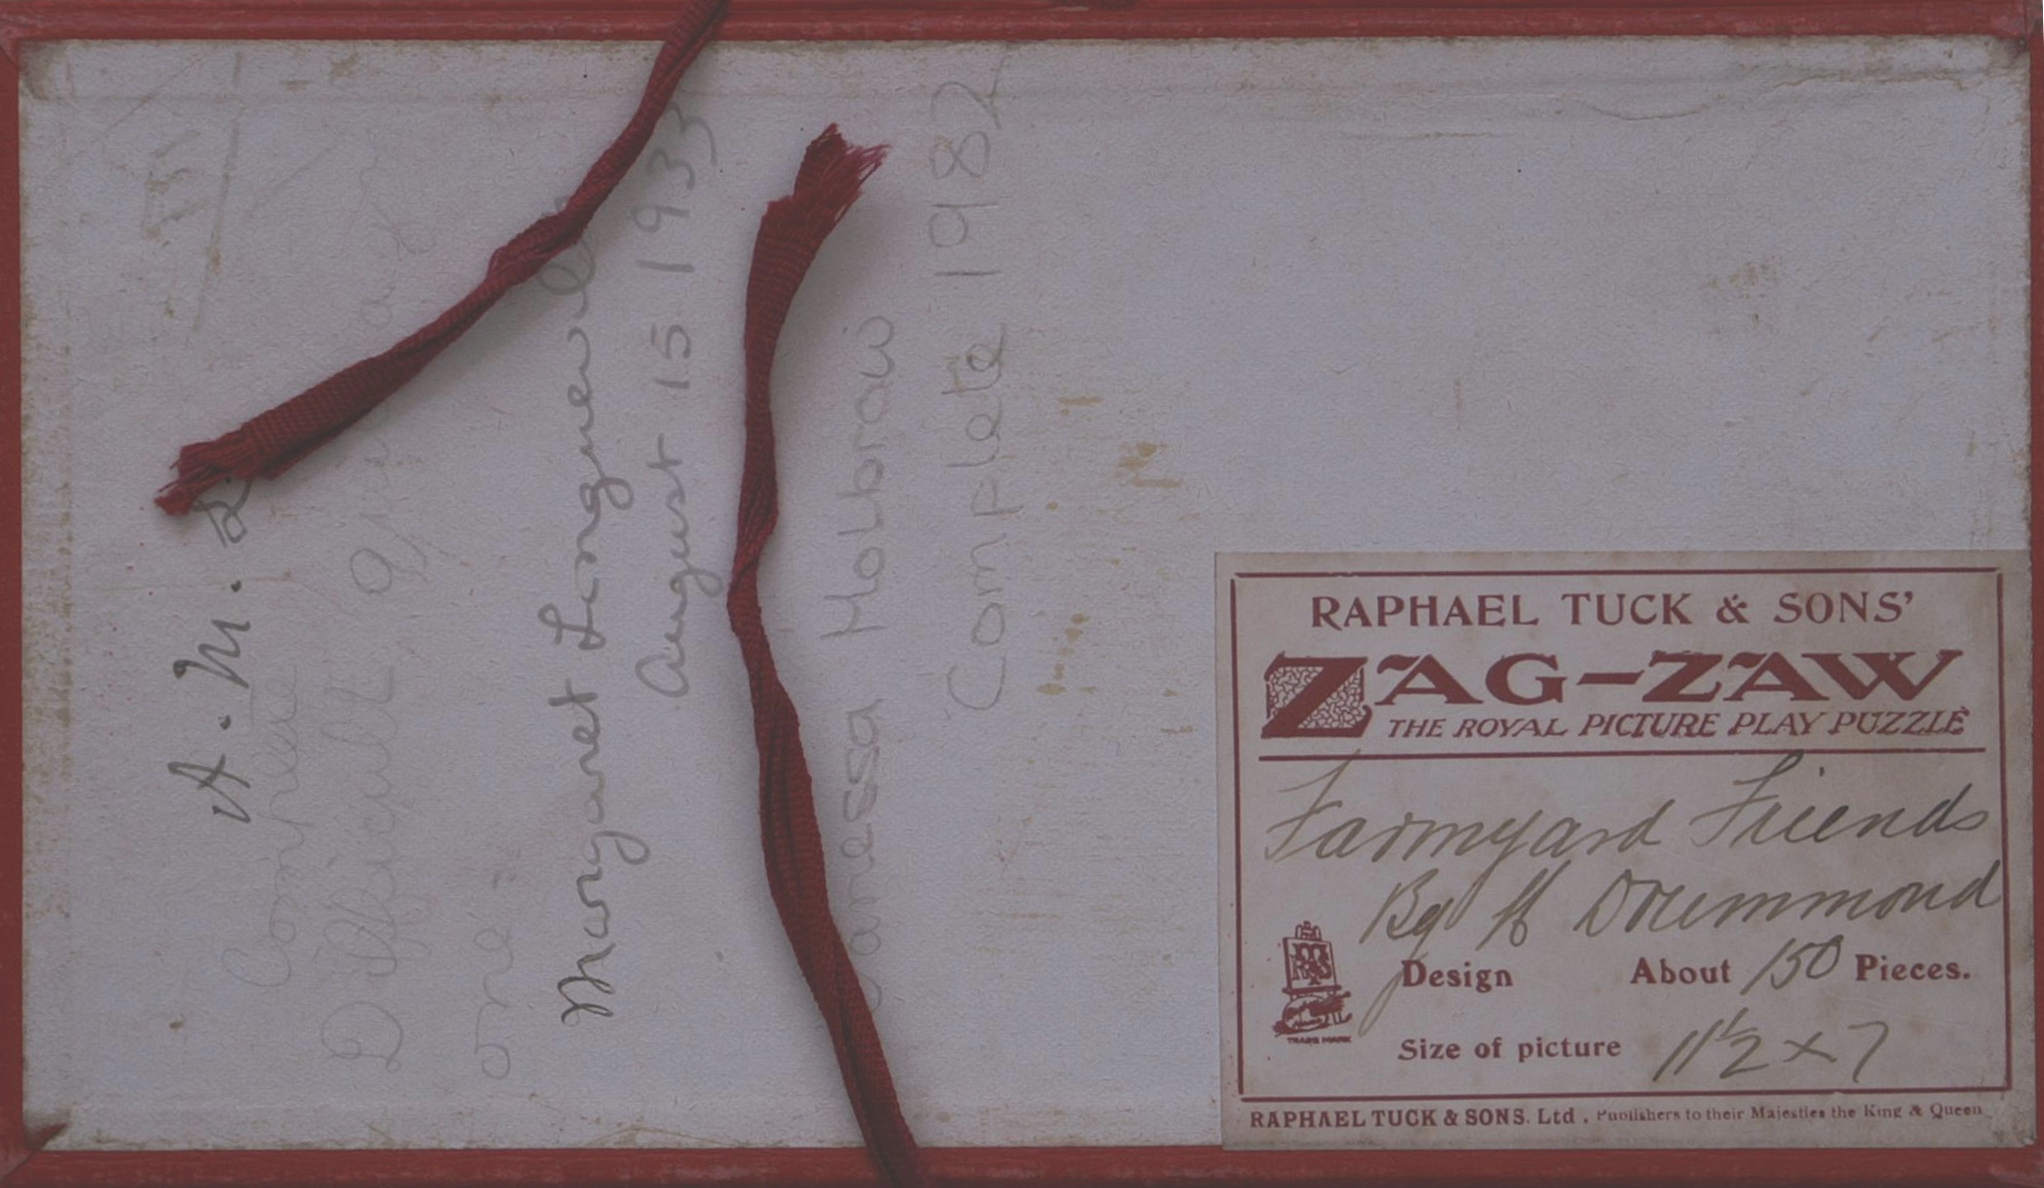 A. M.
Complete
Difficult
one -
Margaret
August 15 1933
Vanessa Holbrow
Complete 1982
RAPHAEL TUCK & SONS'
ZAG-ZAW
THE ROYAL PICTURE PLAY PUZZLE
Farmyard Friends
By H Drummond
Design About 150 Pieces.
TRADE MARK
Size of picture 11½ x 7
RAPHAEL TUCK & SONS. Ltd. Publishers to their Majesties the King & Queen